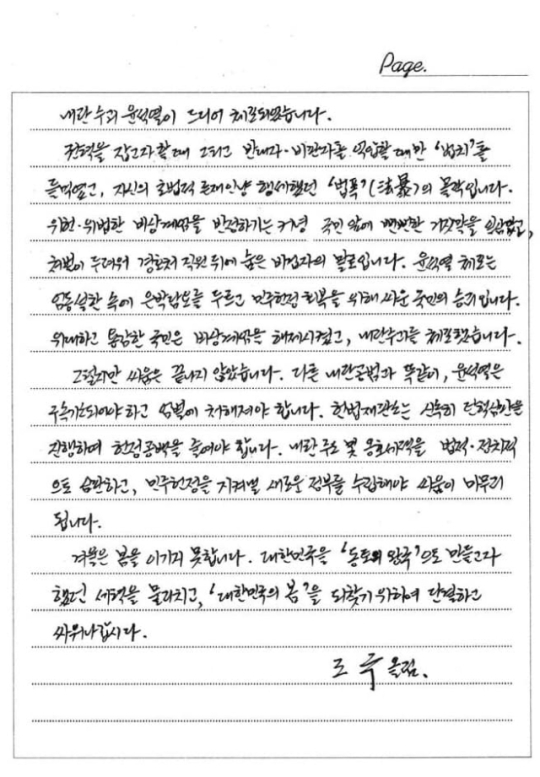 Page.
내란수괴 윤석열이 드디어 체포되었습니다.
권력을 잡고자 할 때 그리고 반대자·비판자를 억압할 때만 '법치'를
들먹였고, 자신의 초법적 존재인양 행세했던 '법폭'(法暴)의 몰락입니다.
위헌·위법한 비상계엄을 반성하기는 커녕 국민 앞에 뻔뻔한 거짓말을 일삼았고,
처벌이 두려워 경호처 직원 뒤에 숨은 비겁자의 말로입니다. 윤석열 체포는
엄동설한 속에 은박담요를 두르고 민주헌정 회복을 위해 싸운 국민의 승리입니다.
위대하고 용감한 국민은 비상계엄을 해제시켰고, 내란수괴를 체포했습니다.
그렇지만 싸움은 끝나지 않았습니다. 다른 내란공범과 똑같이, 윤석열은
구속기소되어야 하고 엄벌에 처해져야 합니다. 헌법재판소는 신속히 탄핵심판을
진행하여 헌정공백을 줄여야 합니다. 내란 주도 및 옹호세력을 법적·정치적
으로 심판하고, 민주헌정을 지켜낼 새로운 정부를 수립해야 싸움이 마무리
됩니다.
겨울은 봄을 이기지 못합니다. 대한민국을 '동토의 왕국'으로 만들고자
했던 세력을 물리치고, '대한민국의 봄'을 되찾기 위하여 단결하고
싸워나갑시다.
조국 올림.